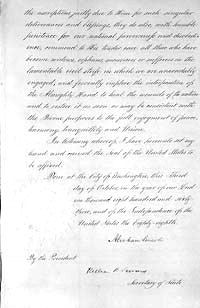 the ascriptions justly due to Him for such singular
deliverances and blessings, they do also, with humble
penitence for our national perverseness and disobedi-
ence, commend to His tender care all those who have
become widows, orphans, mourners or sufferers in the
lamentable civil strife in which we are unavoidably
engaged, and fervently implore the interposition of
the Almighty Hand to heal the wounds of the nation
and to restore it as soon as may be consistent with
the Divine purposes to the full enjoyment of peace,
harmony, tranquillity and Union.
In testimony whereof, I have hereunto set my
hand and caused the Seal of the United States to
be affixed.
Done at the City of Washington, this Third
day of October, in the year of our Lord
one thousand eight hundred and sixty-
three, and of the Independence of the
United States the Eighty-eighth.
Abraham Lincoln
By the President:
William H. Seward
Secretary of State